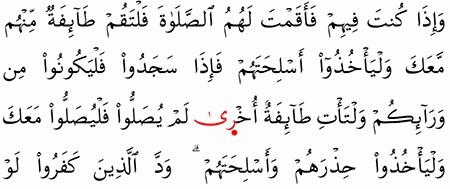 وَإِذَا كُنتَ فِيهِمْ فَأَقَمْتَ لَهُمُ ٱلصَّلَوٰةَ فَلْتَقُمْ طَآئِفَةٌ مِّنْهُم
مَّعَكَ وَلْيَأْخُذُوٓا۟ أَسْلِحَتَهُمْ فَإِذَا سَجَدُوا۟ فَلْيَكُونُوا۟ مِن
وَرَآئِكُمْ وَلْتَأْتِ طَآئِفَةٌ أُخْرىٰ لَمْ يُصَلُّوا۟ فَلْيُصَلُّوا۟ مَعَكَ
وَلْيَأْخُذُوا۟ حِذْرَهُمْ وَأَسْلِحَتَهُمْ ۗ وَدَّ ٱلَّذِينَ كَفَرُوا۟ لَوْ